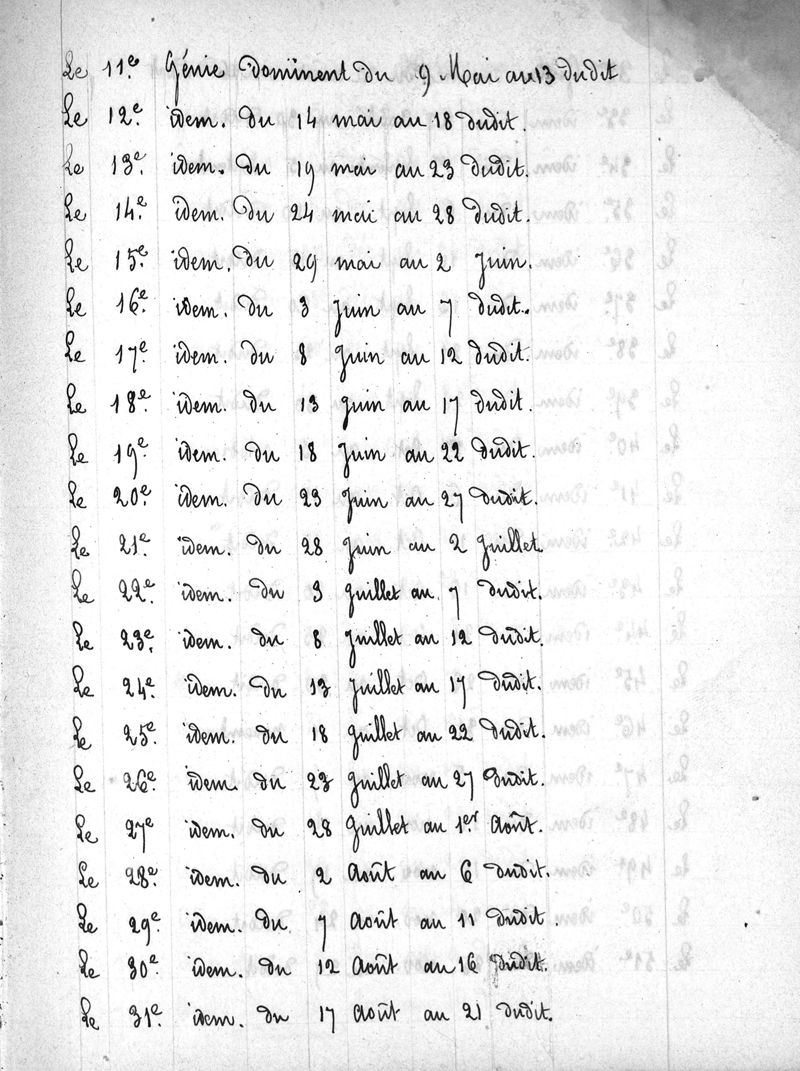 Le 11e. Génie dominent du 9 Mai au 13 dudit
Le 12e. idem. du 14 mai au 18 dudit.
Le 13e. idem. du 19 mai au 23 dudit.
Le 14e. idem. du 24 mai au 28 dudit.
Le 15e. idem. du 29 mai au 2 Juin.
Le 16e. idem. du 3 Juin au 7 dudit.
Le 17e. idem. du 8 Juin au 12 dudit.
Le 18e. idem. du 13 Juin au 17 dudit.
Le 19e. idem. du 18 Juin au 22 dudit.
Le 20e. idem. du 23 Juin au 27 dudit.
Le 21e. idem. du 28 Juin au 2 Juillet.
Le 22e. idem. du 3 Juillet au 7 dudit.
Le 23e. idem. du 8 Juillet au 12 dudit.
Le 24e. idem. du 13 Juillet au 17 dudit.
Le 25e. idem. du 18 Juillet au 22 dudit.
Le 26e. idem. du 23 Juillet au 27 dudit.
Le 27e. idem. du 28 Juillet au 1er. Août.
Le 28e. idem. du 2 Août au 6 dudit.
Le 29e. idem. du 7 Août au 11 dudit.
Le 30e. idem. du 12 Août au 16 dudit.
Le 31e. idem. du 17 Août au 21 dudit.